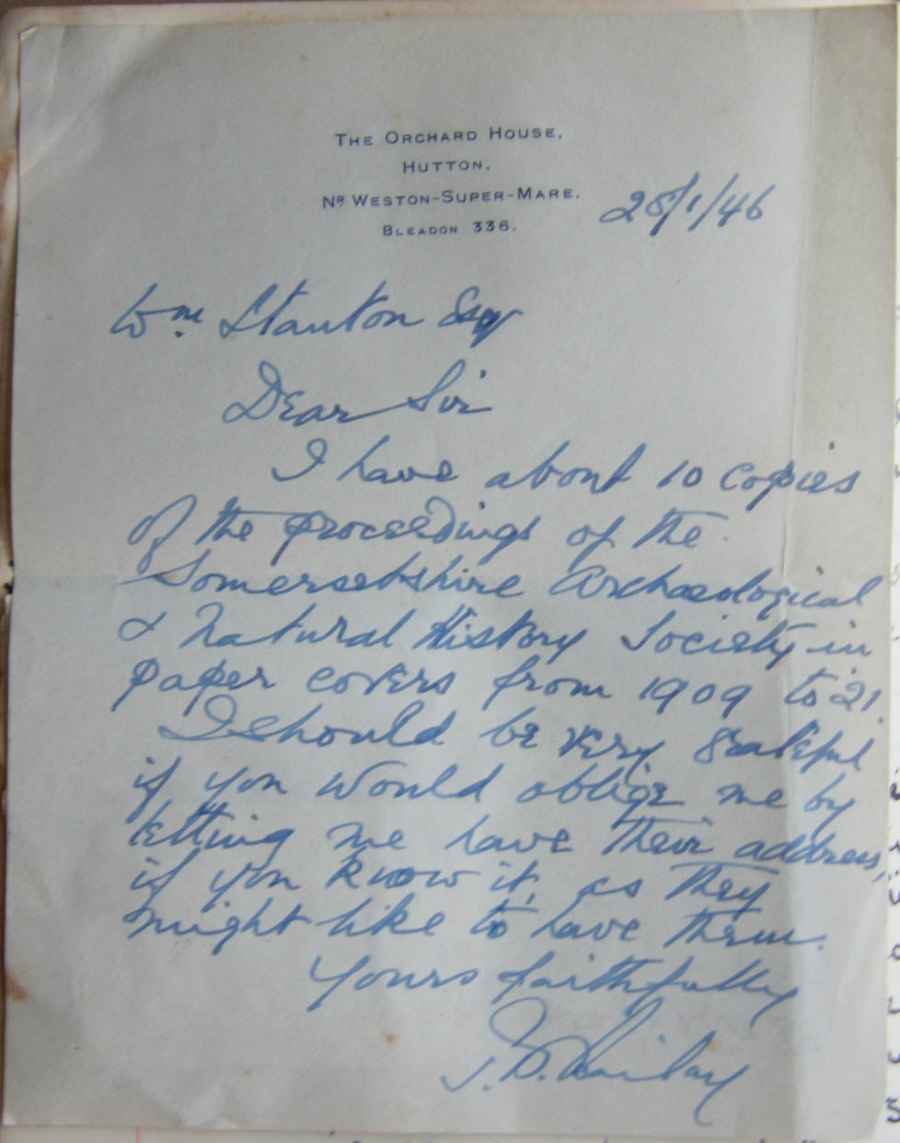 THE ORCHARD HOUSE,
HUTTON,
NR WESTON-SUPER-MARE.
BLEADON 336.
28/1/46
Wm Stanton Esq
Dear Sir
I have about 10 copies
of the proceedings of the
Somersetshire Archaeological
& Natural History Society in
paper covers from 1909 to 21.
I should be very grateful
if you would oblige me by
letting me have their address,
if you know it, as they
might like to have them.
Yours faithfully